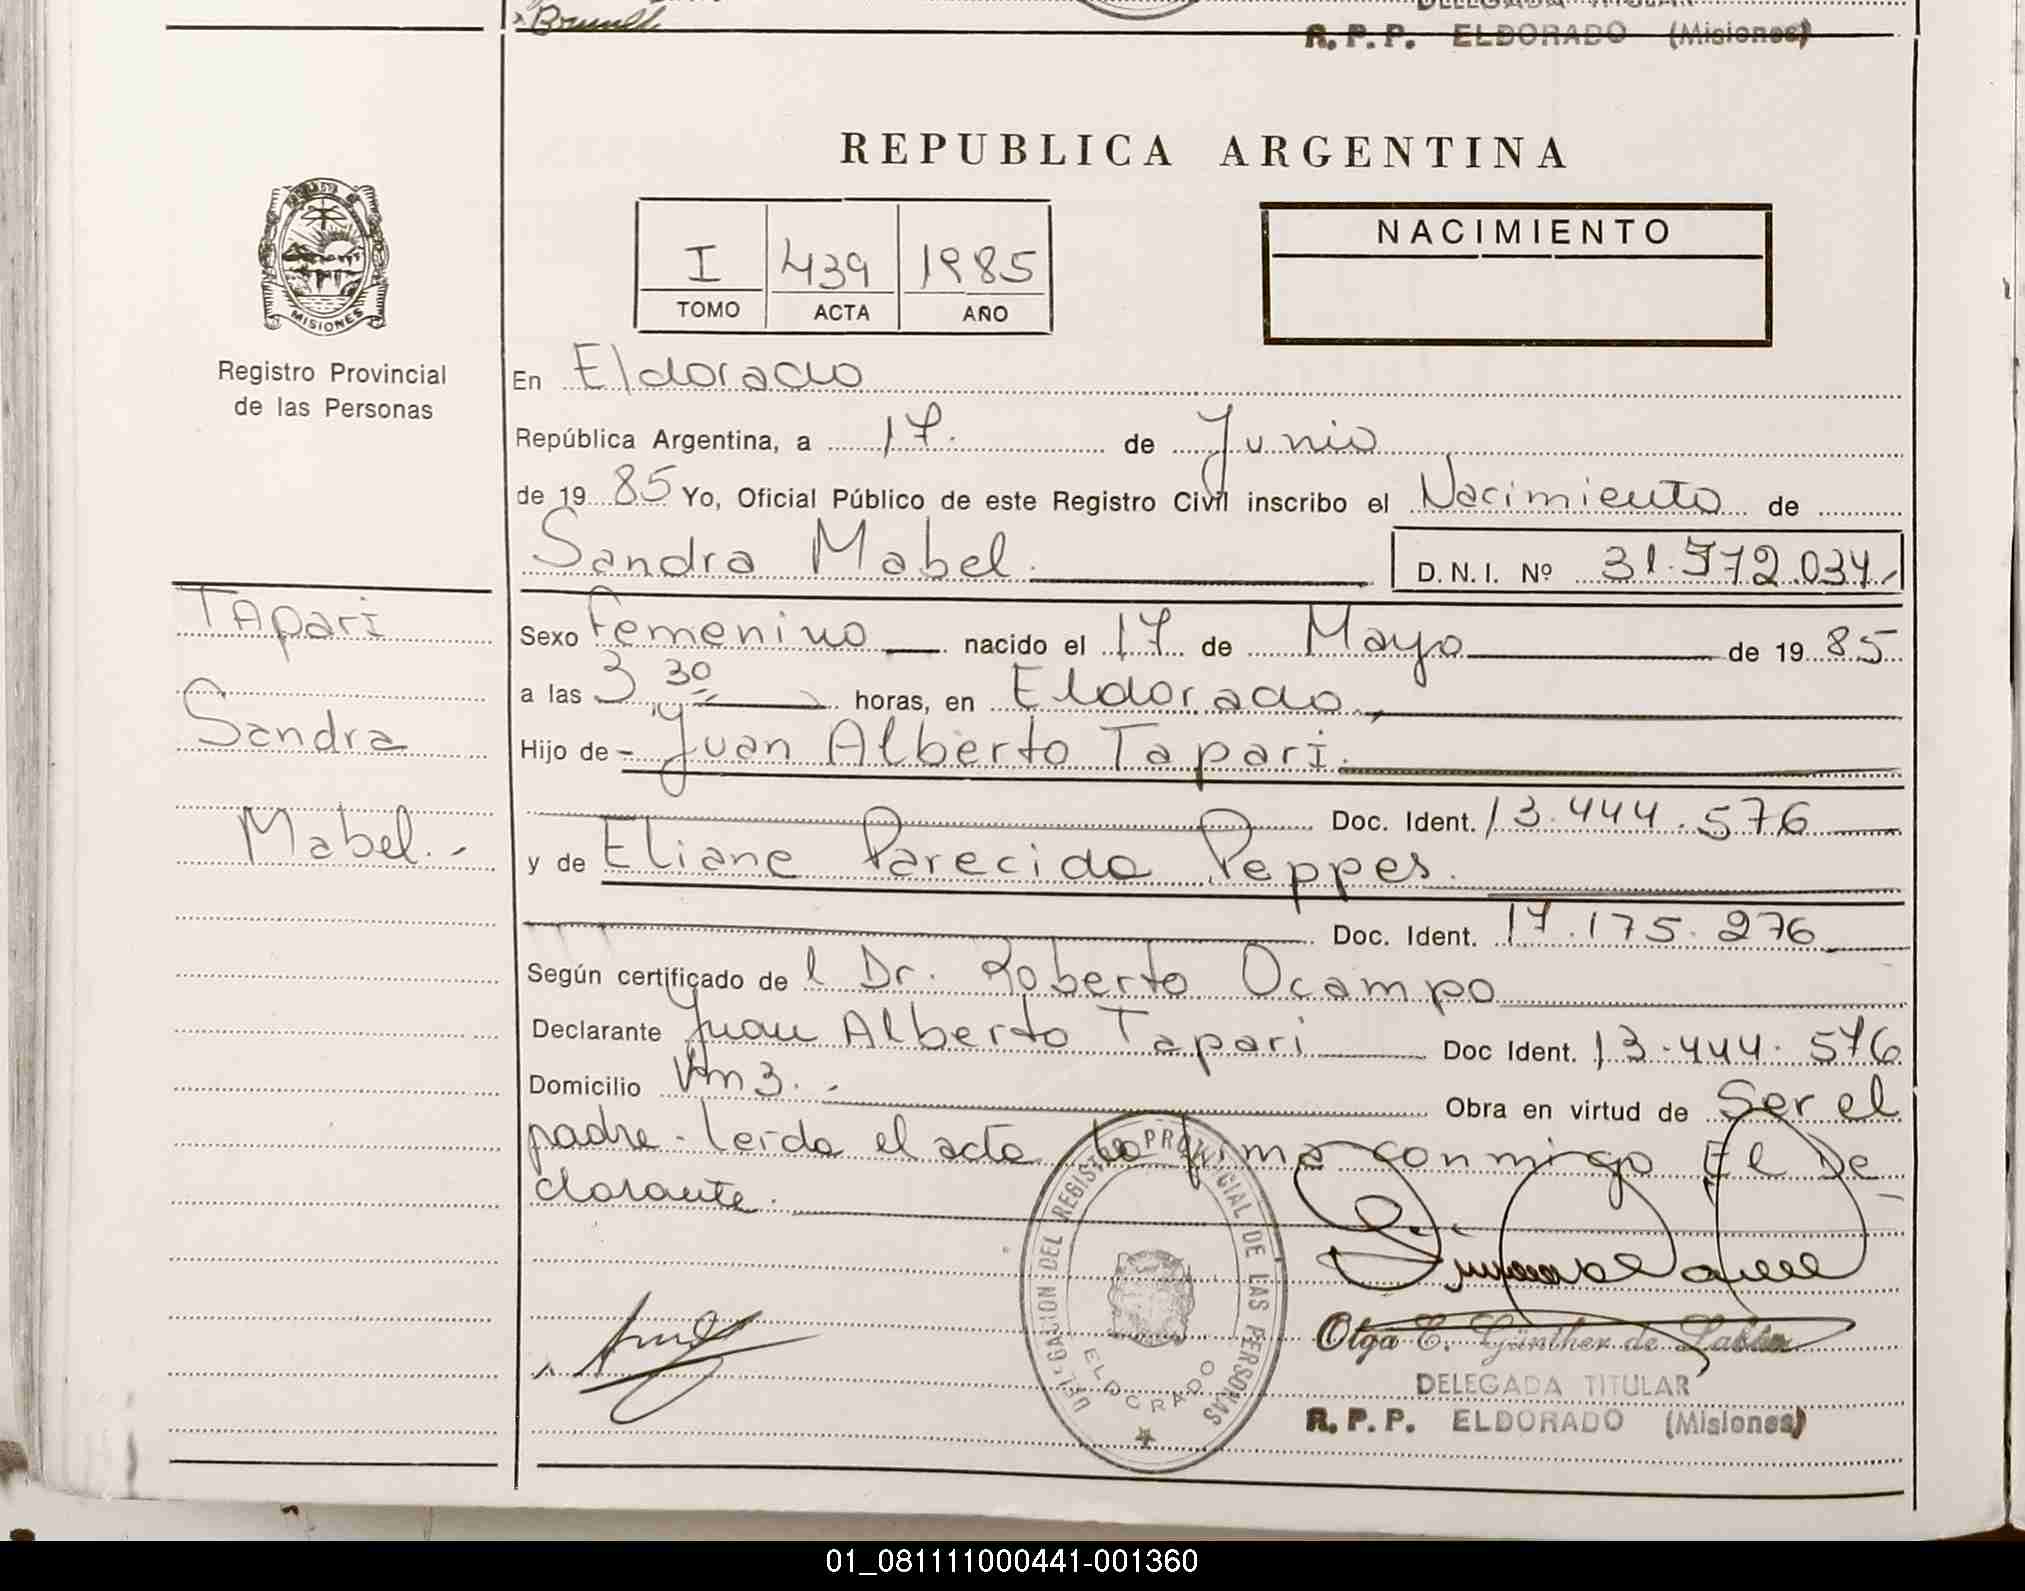 R. P. P. ELDORADO (Misiones)
REPUBLICA ARGENTINA
NACIMIENTO
I 439 1985
TOMO ACTA AÑO
MISIONES
Registro Provincial
de las Personas
En Eldorado
República Argentina, a 17. de Junio
de 19 85 Yo, Oficial Público de este Registro Civil inscribo el Nacimiento de
Sandra Mabel. D.N.I. Nº 31.572.034
Tapari
Sandra
Mabel.-
Sexo femenino nacido el 17 de Mayo de 19 85
a las 3 30 horas, en Eldorado
Hijo de - Juan Alberto Tapari.
Doc. Ident. 13.444.576
y de Eliane Parecida Peppes.
Doc. Ident. 17.175.276
Según certificado de l Dr. Roberto Ocampo
Declarante Juan Alberto Tapari Doc Ident. 13.444.576
Domicilio Km 3. - Obra en virtud de Ser el
padre - leida el acta la firma conmigo El De
clarante.
DELEGACION DEL REGISTRO PROVINCIAL DE LAS PERSONAS
ELDORADO
Olga E. Günther de
DELEGADA TITULAR
R. P. P. ELDORADO (Misiones)
01_081111000441-001360